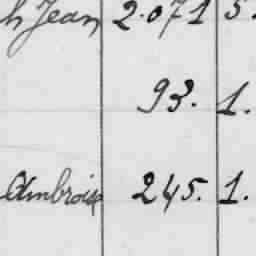 h Jean 2.071 5.
93. 1.
Ambroise 245. 1.